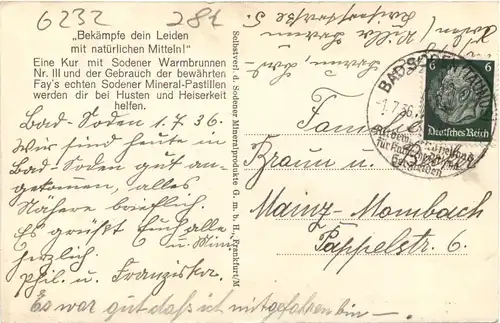 6232 281
„Bekämpfe dein Leiden
mit natürlichen Mitteln!"
Eine Kur mit Sodener Warmbrunnen
Nr. III und der Gebrauch der bewährten
Fay's echten Sodener Mineral-Pastillen
werden dir bei Husten und Heiserkeit
helfen.
Bad-Soden 1.7.36.
Wir sind heute in
Bad-Soden gut an-
gekommen, alles
Nähere brieflich.
Es grüßt Euch alle
herzlich. u. Mimi
Phil. u. Franziska.
Es war gut daß ich mitgefahren bin —
Selbstverl. d. Sodener Mineralprodukte G. m. b. H., Frankfurt/M
BAD SODEN
1.7.36
6 6
Deutsches Reich
Familie
Braun u.
Mainz-Mombach
Pappelstr. 6.